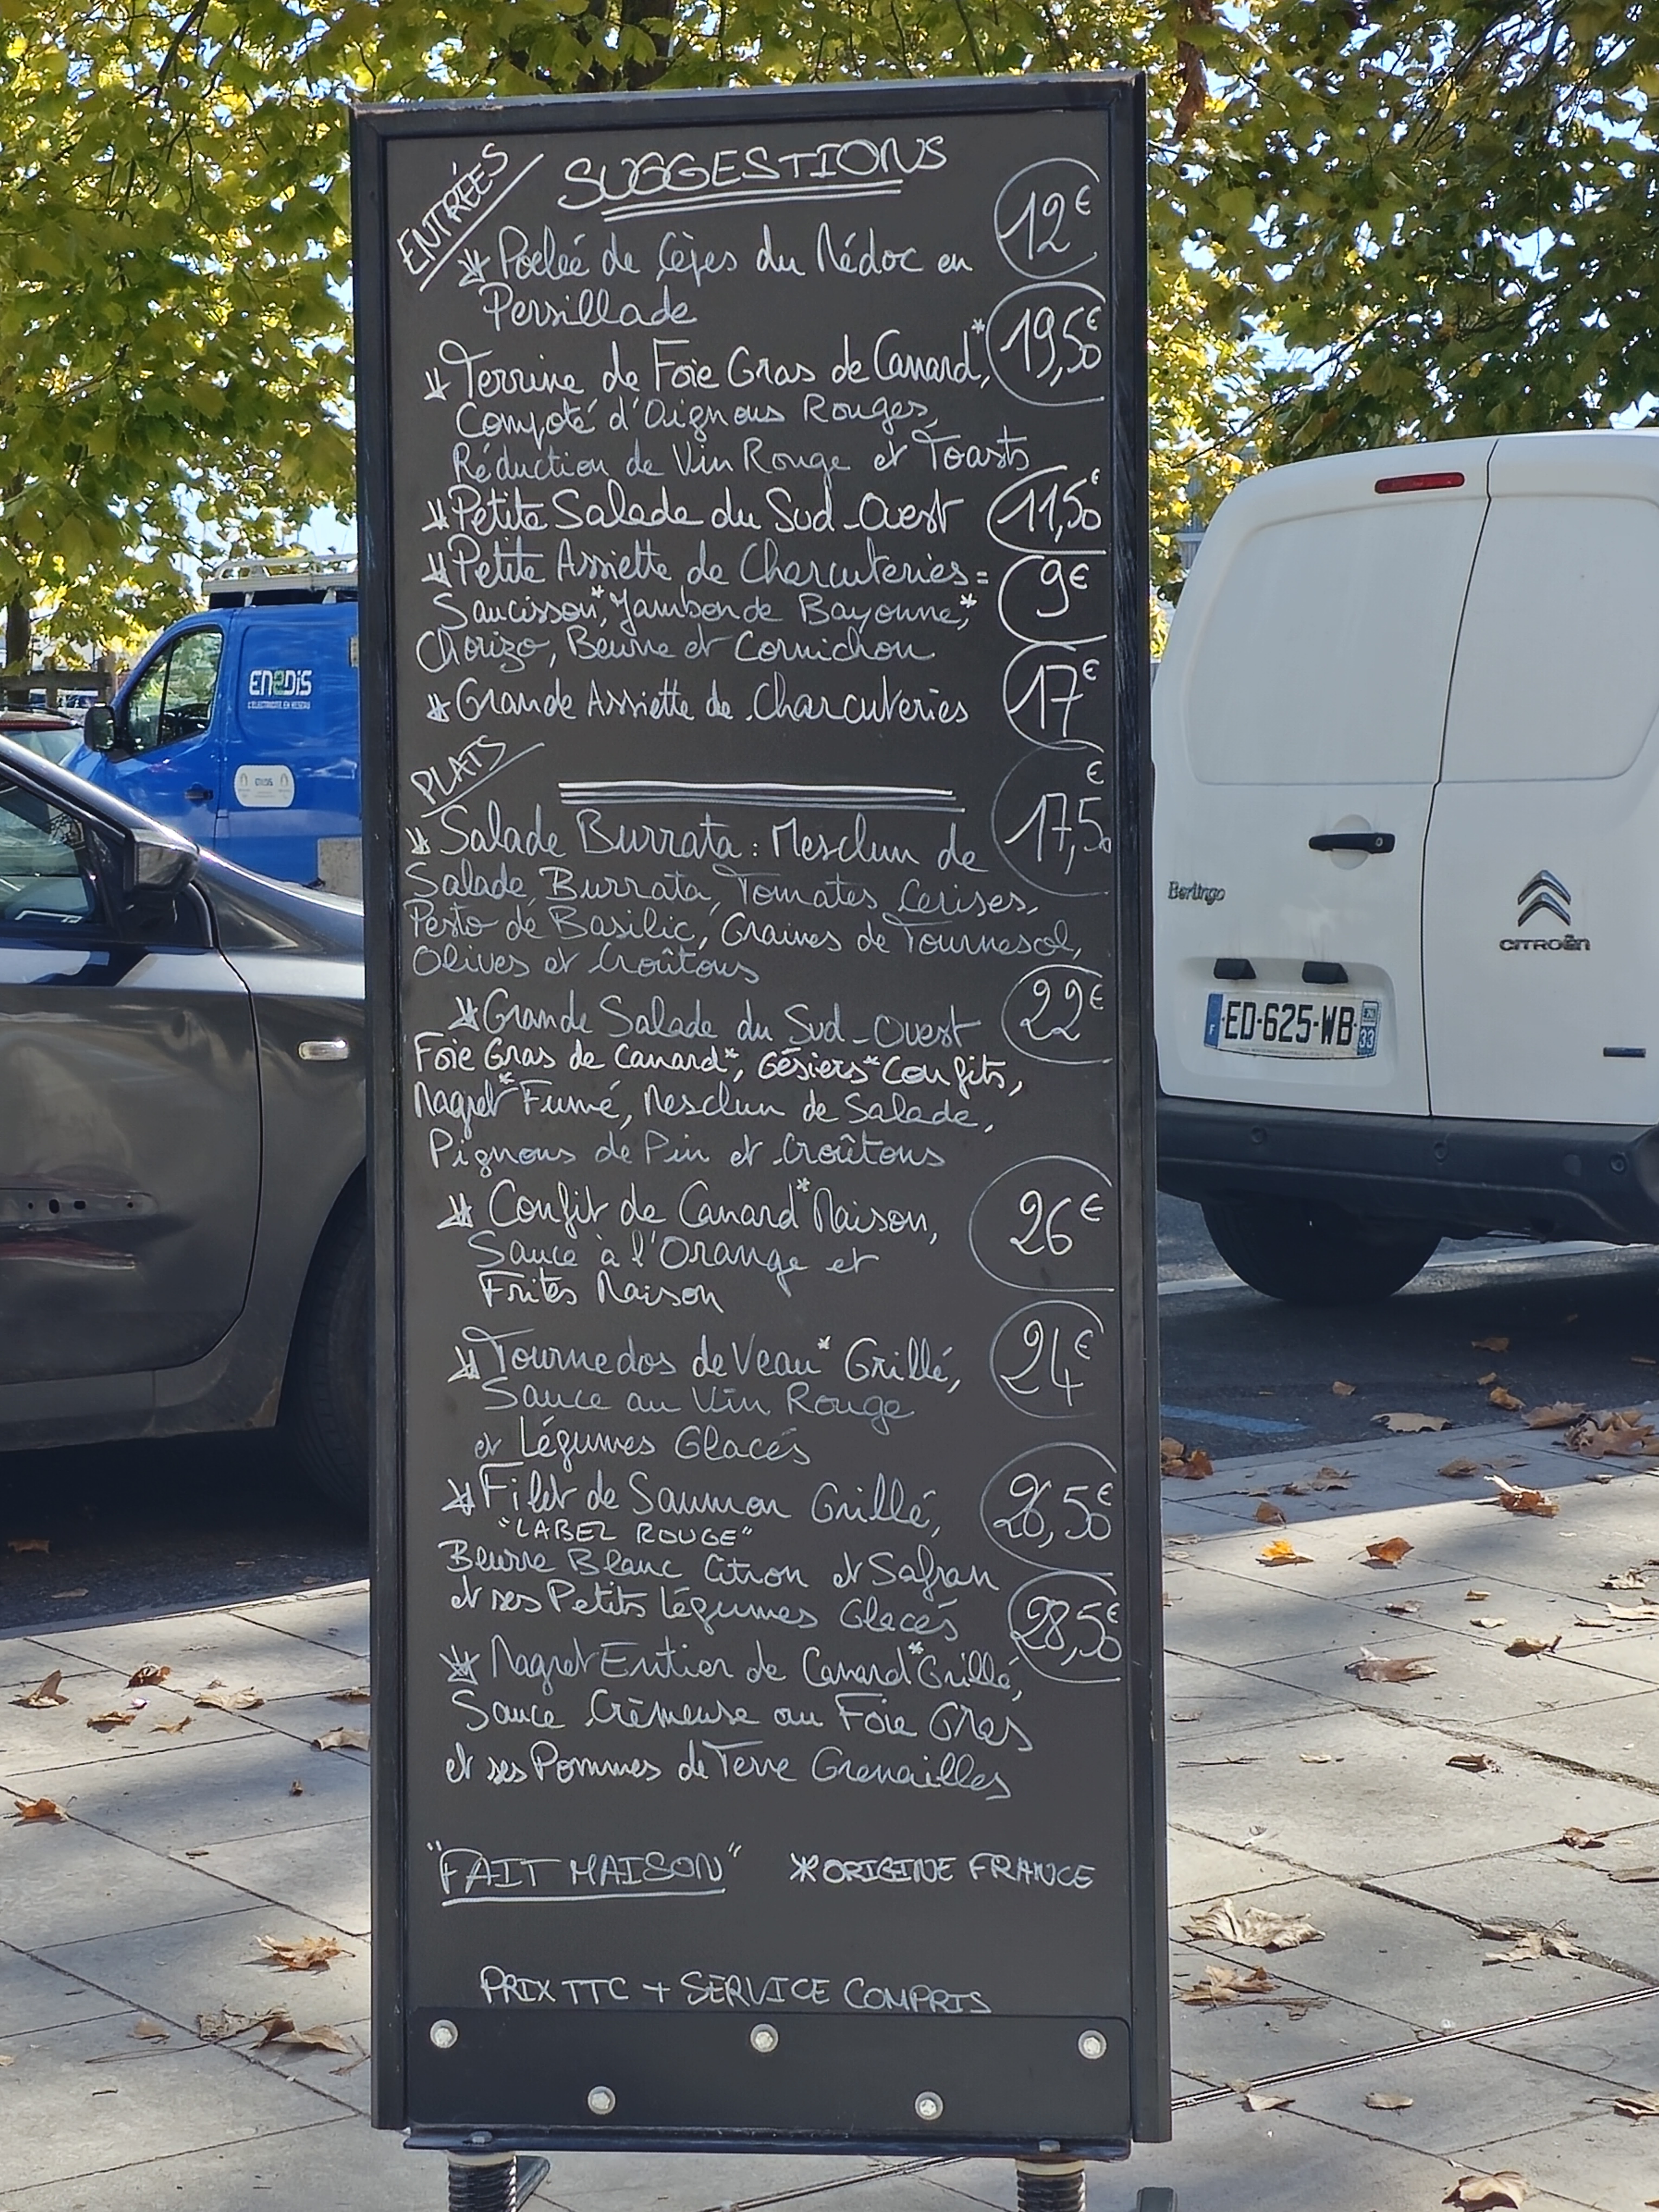 ENTRÉES
SUGGESTIONS
* Poêlée de Cèpes du Médoc en 12€
Persillade
* Terrine de Foie Gras de Canard*, 19,50€
Compoté d'Oignons Rouges,
Réduction de Vin Rouge et Toasts
* Petite Salade du Sud-Ouest 11,50€
* Petite Assiette de Charcuteries = 9€
Saucisson*, Jambon de Bayonne*,
Chorizo, Beurre et Cornichon
* Grande Assiette de Charcuteries 17€
PLATS
* Salade Burrata : Mesclun de 17,50€
Salade, Burrata, Tomates Cerises,
Pesto de Basilic, Graines de Tournesol,
Olives et Croûtons
* Grande Salade du Sud-Ouest 22€
Foie Gras de Canard*, Gésiers* Confits,
Magret* Fumé, Mesclun de Salade,
Pignons de Pin et Croûtons
* Confit de Canard* Maison, 26€
Sauce à l'Orange et
Frites Maison
* Tournedos de Veau* Grillé, 24€
Sauce au Vin Rouge
et Légumes Glacés
* Filet de Saumon Grillé, 26,50€
"LABEL ROUGE"
Beurre Blanc Citron et Safran
et ses Petits Légumes Glacés
* Magret Entier de Canard* Grillé, 28,50€
Sauce Crèmeuse au Foie Gras
et ses Pommes de Terre Grenailles
"FAIT MAISON" *ORIGINE FRANCE
PRIX TTC + SERVICE COMPRIS
ENEDIS
L'ELECTRICITE EN RESEAU
ENEDIS
Berlingo
CITROËN
F ED-625-WB 33